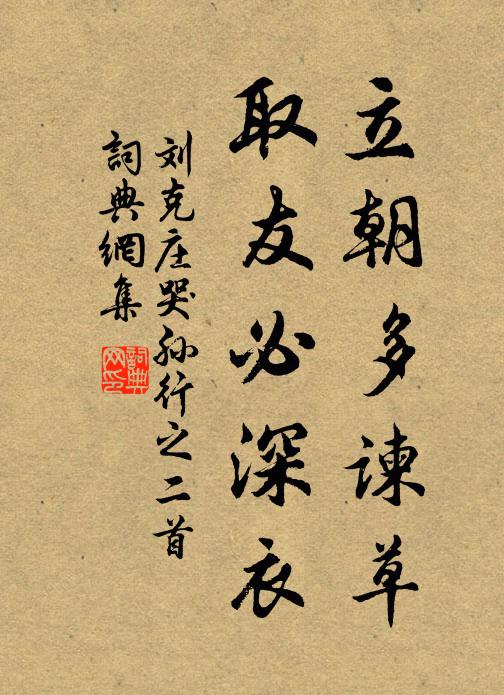 立朝多谏草
取友必深衣
刘克庄哭孙行之二首
詞典網集
詞典网印